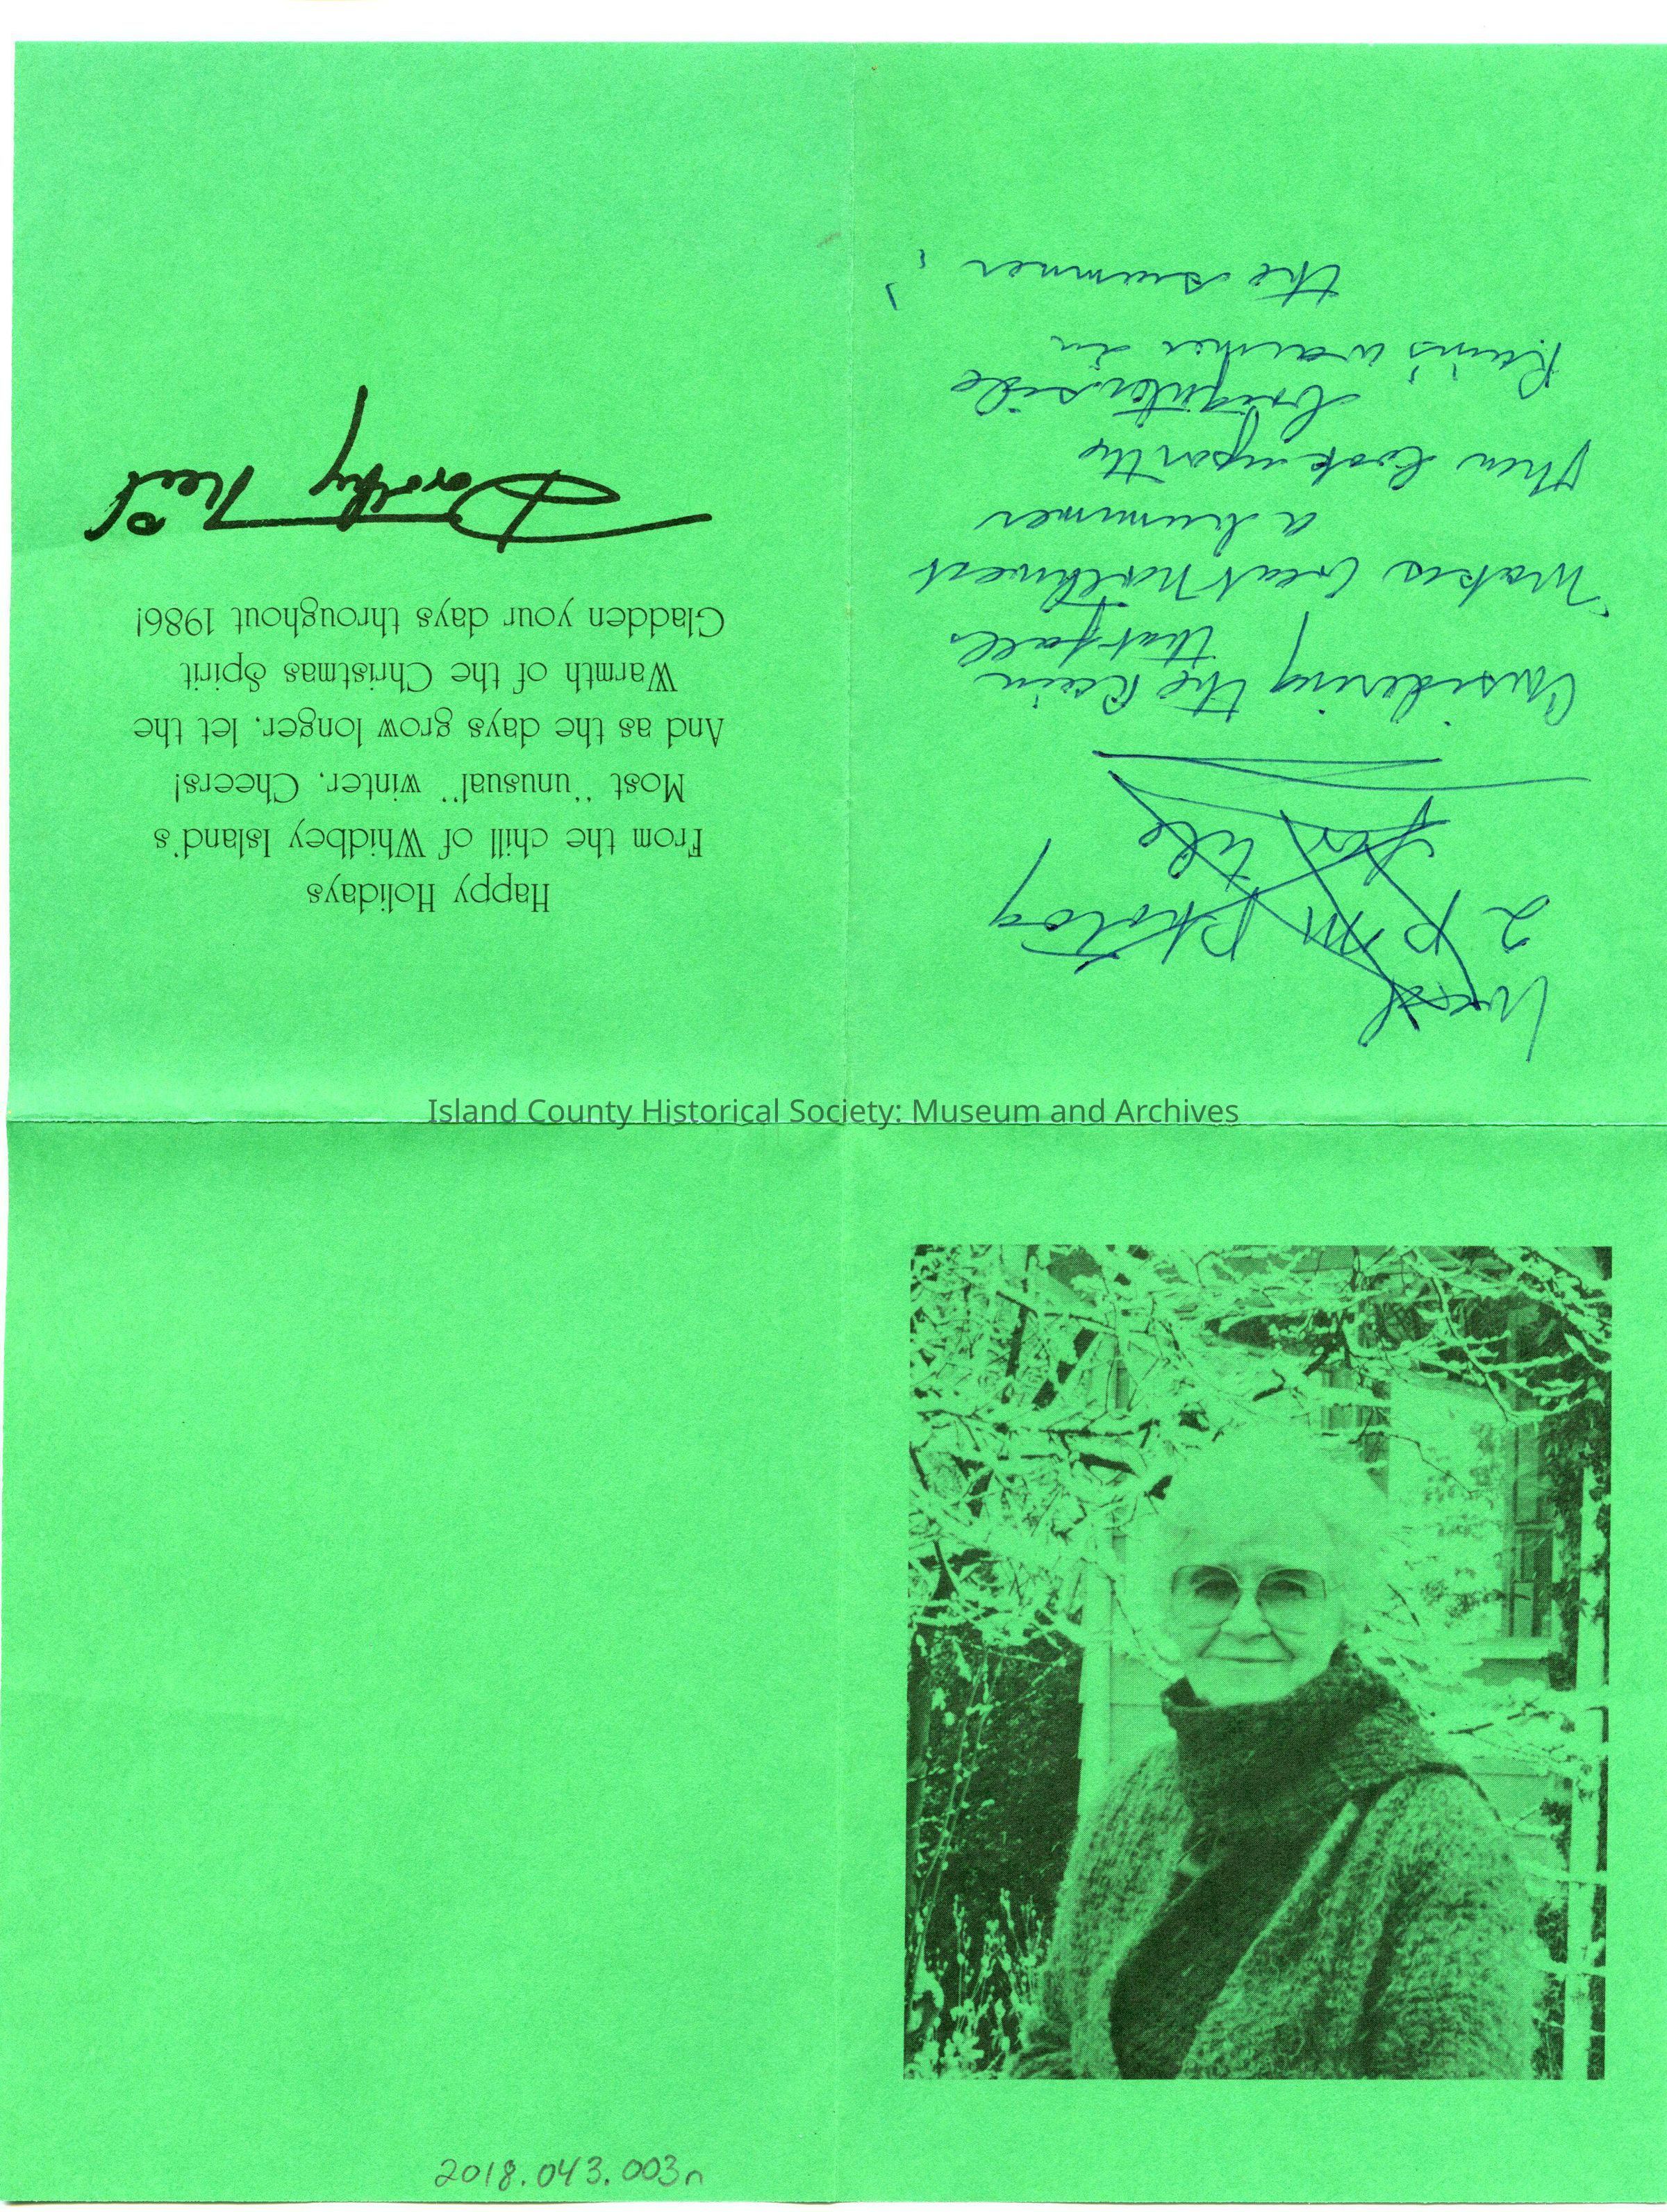 Happy Holidays
From the chill of Whidbey Island's
Most "unusual" winter, Cheers!
And as the days grow longer, let the
Warmth of the Christmas Spirit
Gladden your days throughout 1986!
Dorothy Neil
2 P M photog
for the
Considering the Rain
that falls
Makes Great Northwest
a bummer
Then look upon the
brighter side
Rain's warmer in
the summer!
Island County Historical Society: Museum and Archives
2018.043.003n